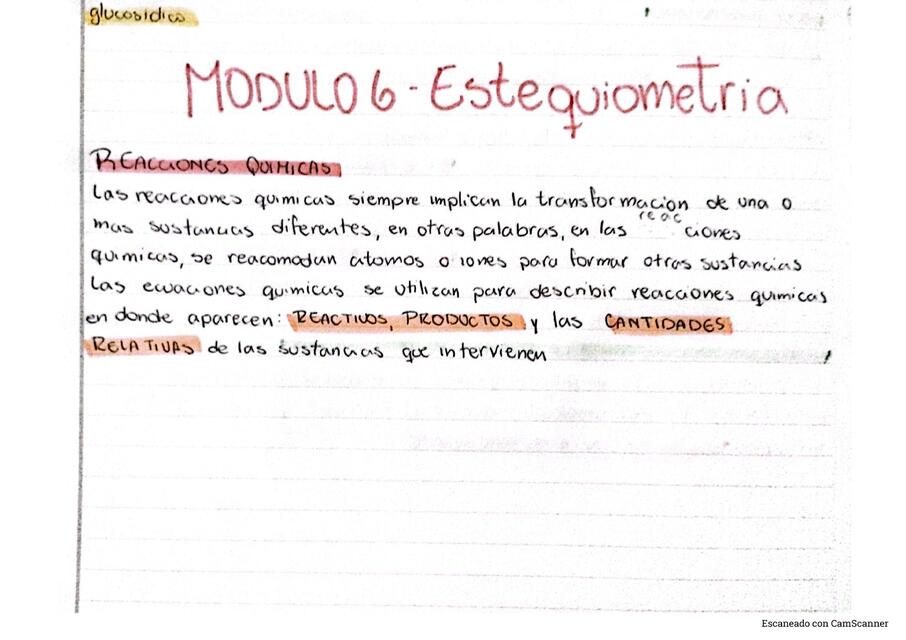 glucosidico
MODULO 6 - Estequiometria
REACCIONES QUIMICAS
Las reacciones quimicas siempre implican la transformacion de una o
mas sustancias diferentes, en otras palabras, en las reacciones
quimicas, se reacomodan atomos o iones para formar otras sustancias
Las ecuaciones quimicas se utilizan para describir reacciones quimicas
en donde aparecen: REACTIVOS, PRODUCTOS y las CANTIDADES
RELATIVAS de las sustancias que intervienen
Escaneado con CamScanner